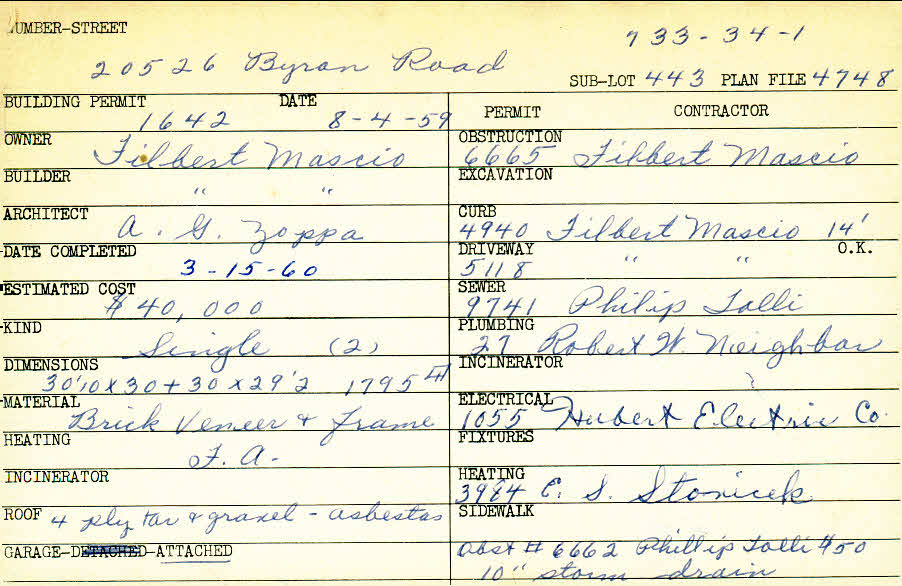 NUMBER-STREET
933-34-1
20526 Byron Road
SUB-LOT 443 PLAN FILE 4748
BUILDING PERMIT DATE
1642 8-4-59
PERMIT CONTRACTOR
OWNER
Filbert Mascio
BUILDER
" "
ARCHITECT
A. G. Zoppa
DATE COMPLETED
3-15-60
ESTIMATED COST
$40,000
KIND
Single (2)
DIMENSIONS
30'10 x 30 + 30 x 29'2 1795
MATERIAL
Brick Veneer & frame
HEATING
F. A.
INCINERATOR
ROOF 4 ply tar & gravel - asbestas
GARAGE-DETACHED-ATTACHED
OBSTRUCTION
6665 Filbert Mascio
EXCAVATION
CURB
4940 Filbert Mascio 14'
DRIVEWAY O.K.
5118 " "
SEWER
9741 Philip Lolli
PLUMBING
27 Robert W. Neighbar
INCINERATOR
ELECTRICAL
1055 Hubert Electric Co.
FIXTURES
HEATING
3984 C. S. Stonicek
SIDEWALK
Obst # 6662 Phillip Lolli $50
10" storm drain